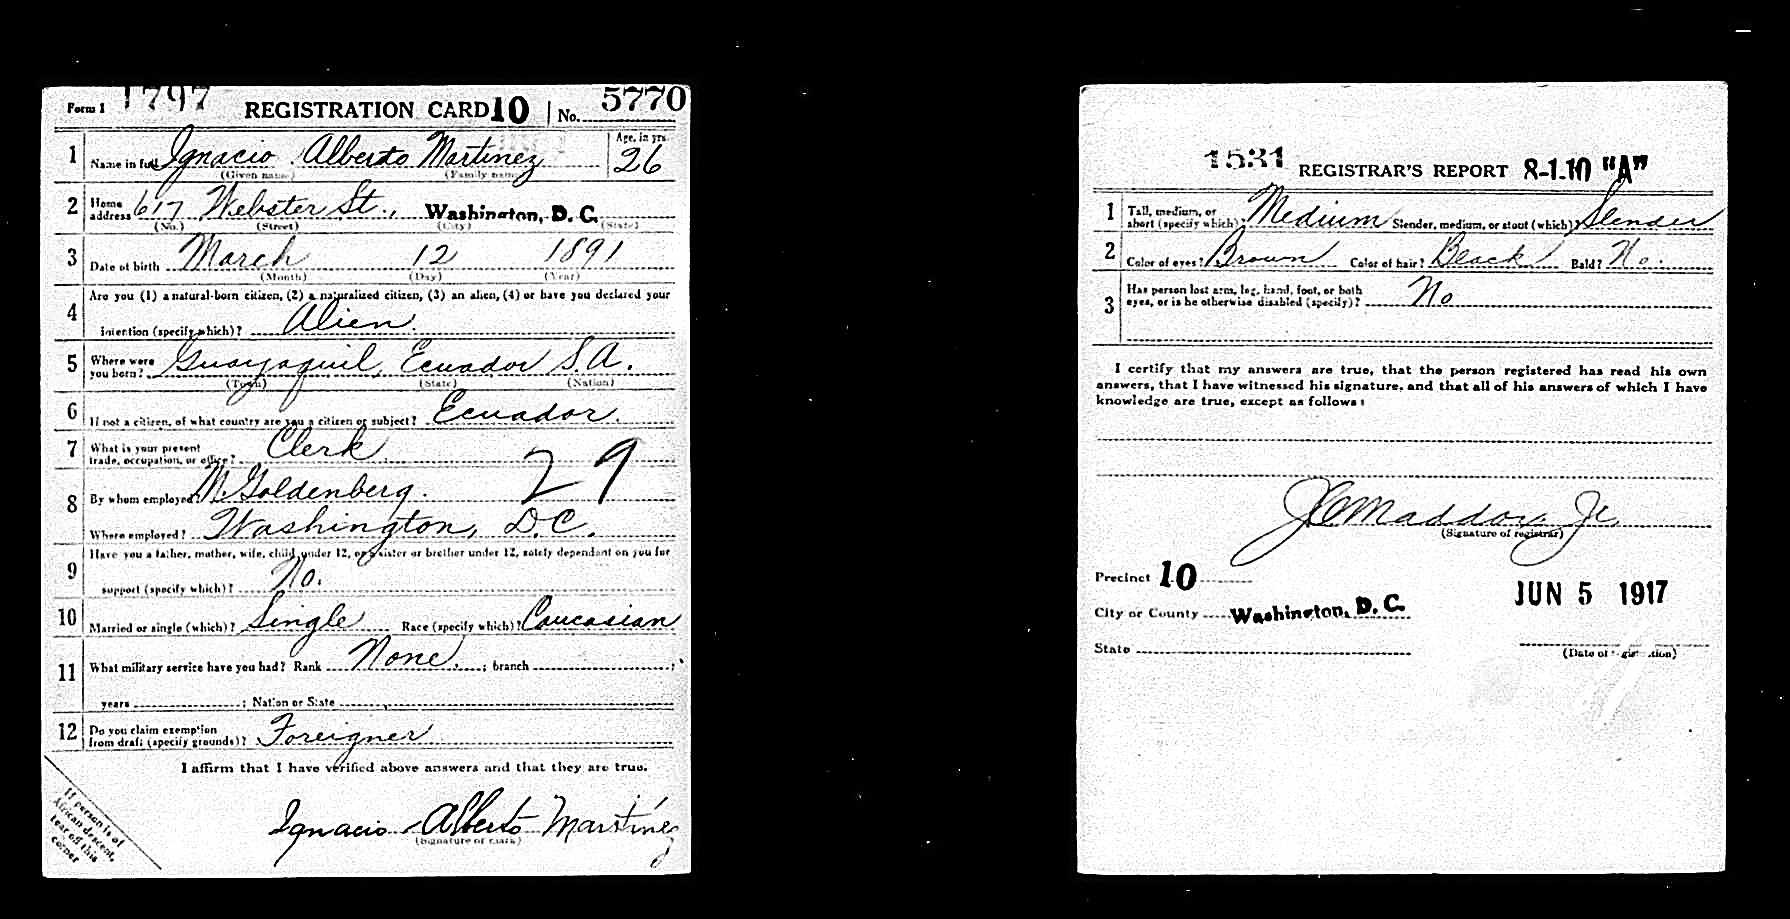 Form 1 1797 REGISTRATION CARD 10 No. 5770
1 Name in full Ignacio Alberto Martinez Age, in yrs. 26
(Given name) (Family name)
2 Home address 617 Webster St., Washington, D. C.
(No.) (Street) (City) (State)
3 Date of birth March 12 1891
(Month) (Day) (Year)
Are you (1) a natural-born citizen, (2) a naturalized citizen, (3) an alien, (4) or have you declared your
4 intention (specify which)? Alien.
5 Where were you born? Guayaquil, Ecuador S.A.
(Town) (State) (Nation)
6 If not a citizen, of what country are you a citizen or subject? Ecuador.
7 What is your present trade, occupation, or office? Clerk
8 By whom employed? M. Goldenberg. 29
Where employed? Washington, D.C.
Have you a father, mother, wife, child under 12, or a sister or brother under 12, solely dependent on you for
9 support (specify which)? No.
10 Married or single (which)? Single Race (specify which)? Caucasian
11 What military service have you had? Rank None. ; branch ;
years ; Nation or State
12 Do you claim exemption from draft (specify grounds)? Foreigner
I affirm that I have verified above answers and that they are true.
Ignacio Alberto Martínez
(Signature or mark)
If person is of
African descent,
tear off this
corner
1531 REGISTRAR'S REPORT 8-1-10 "A"
1 Tall, medium, or short (specify which)? Medium Slender, medium, or stout (which)? Slender
2 Color of eyes? Brown Color of hair? Black Bald? No.
3 Has person lost arm, leg, hand, foot, or both
eyes, or is he otherwise disabled (specify)? No
I certify that my answers are true, that the person registered has read his own
answers, that I have witnessed his signature, and that all of his answers of which I have
knowledge are true, except as follows:
Maddox Jr.
(Signature of registrar)
Precinct 10
City or County Washington, D. C. JUN 5 1917
State (Date of registration)